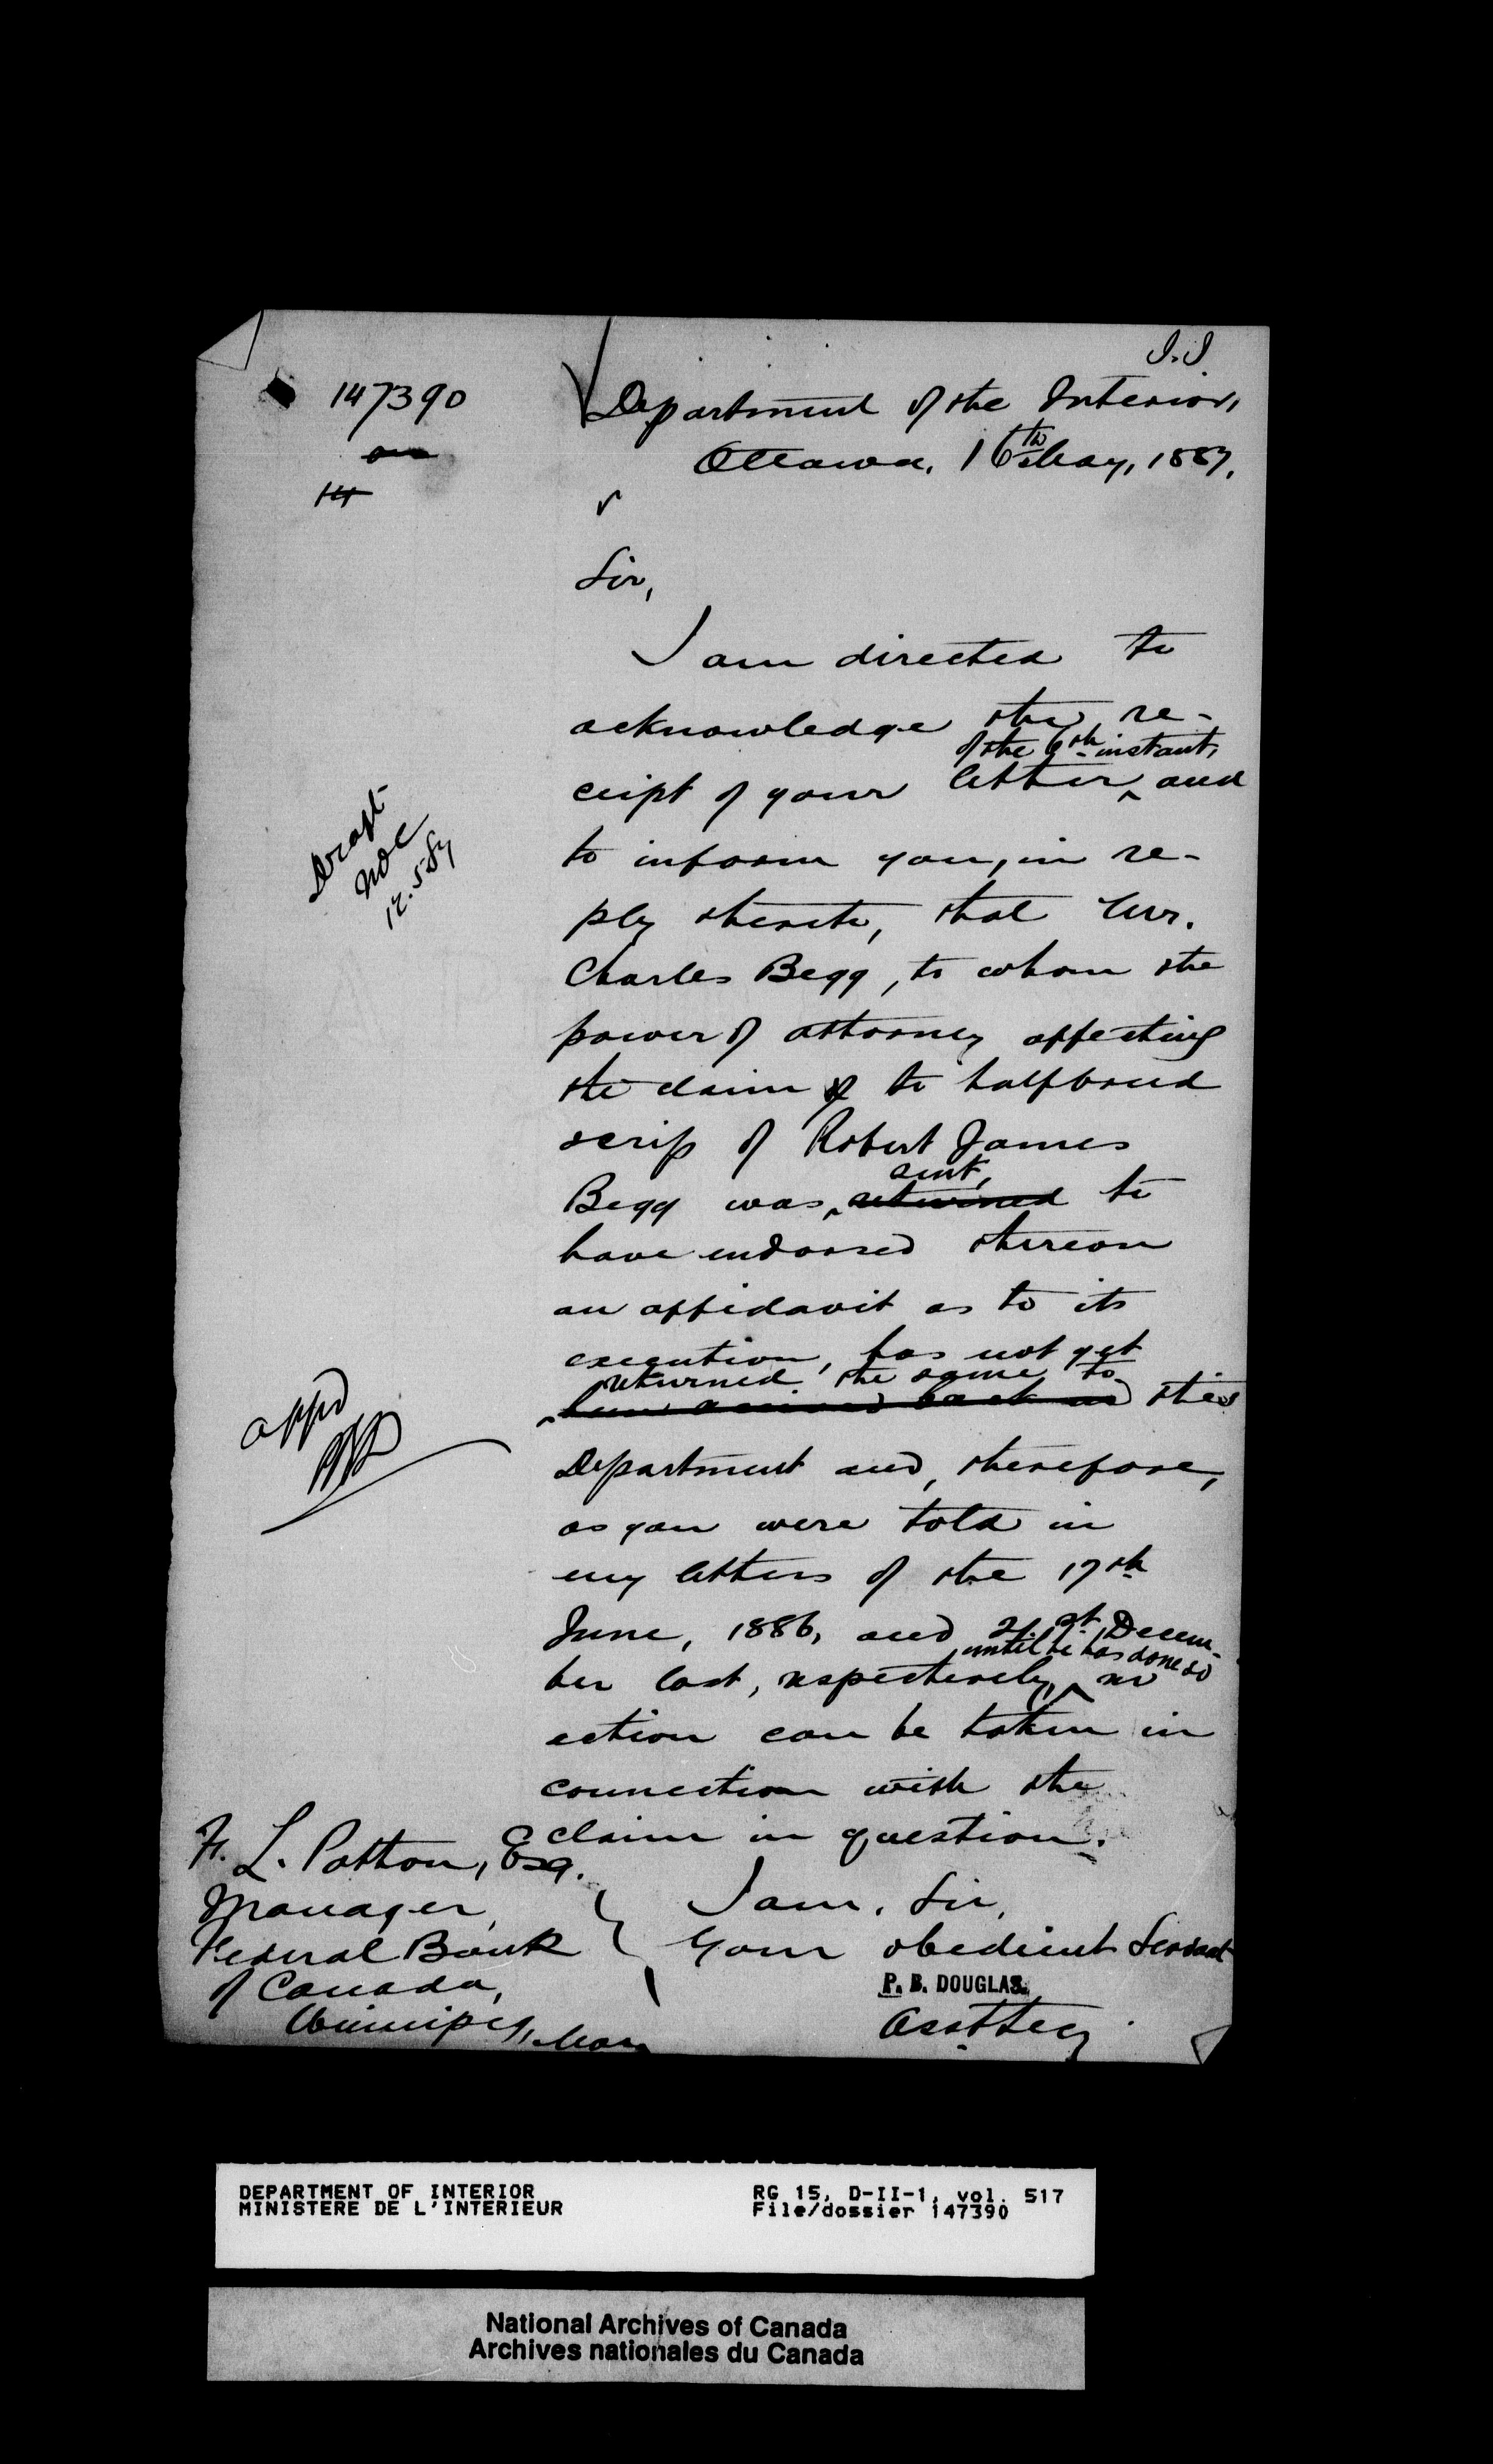 J.J.
147390
Department of the Interior,
Ottawa, 16th May, 1887.
14
Sir,
I am directed to
acknowledge the re-
of the 6th instant,
ceipt of your letter, and
to inform you, in re-
ply thereto, that Mr.
Charles Begg, to whom the
power of attorney affecting
the claim to halfbreed
scrip of Robert James
sent,
Begg was returned to
have endorsed thereon
an affidavit as to its
execution, has not yet
returned the same to
this
Department and, therefore,
as you were told in
my letters of the 17th
June, 1886, and 21st Decem-
until he has done so
ber last, respectively, no
action can be taken in
connection with the
claim in question.
I am, Sir,
Your obedient Servant
P. B. DOUGLAS.
Asst Secy
Draft
12.5.87
appd
F. L. Patton, Esq.
Manager,
Federal Bank
of Canada,
Winnipeg, Man
DEPARTMENT OF INTERIOR
MINISTERE DE L'INTERIEUR
RG 15, D-II-1, vol. 517
File/dossier 147390
National Archives of Canada
Archives nationales du Canada